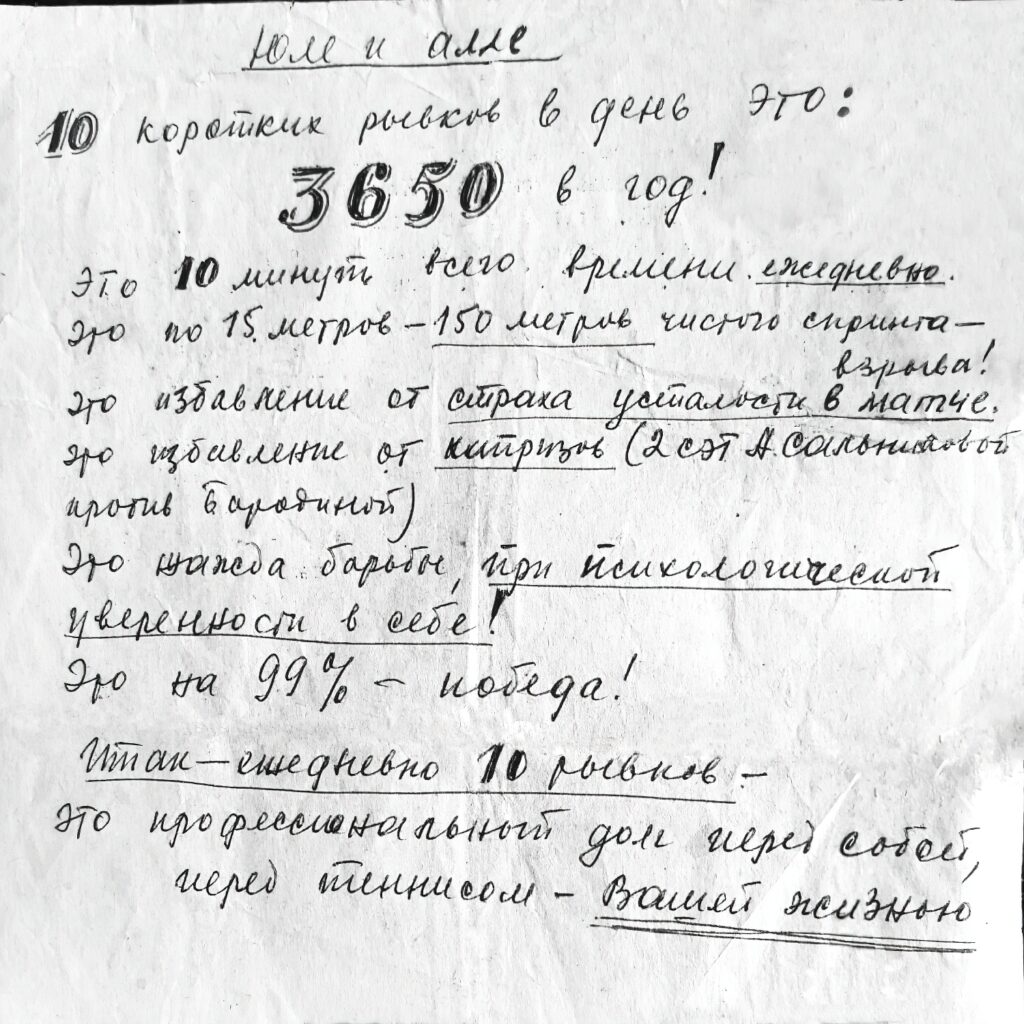 Юле и Алле
10 коротких рывков в день это:
3650 в год!
Это 10 минут всего времени ежедневно.
Это по 15 метров – 150 метров чистого спринта –
взрыва!
Это избавление от страха усталости в матче.
Это избавление от капризов (2 сэт А. Сальниковой
против Бородиной)
Это жажда борьбы, при психологической
уверенности в себе!
Это на 99% – победа!
Итак – ежедневно 10 рывков –
это профессиональный долг перед собой,
перед теннисом – Вашей жизнью